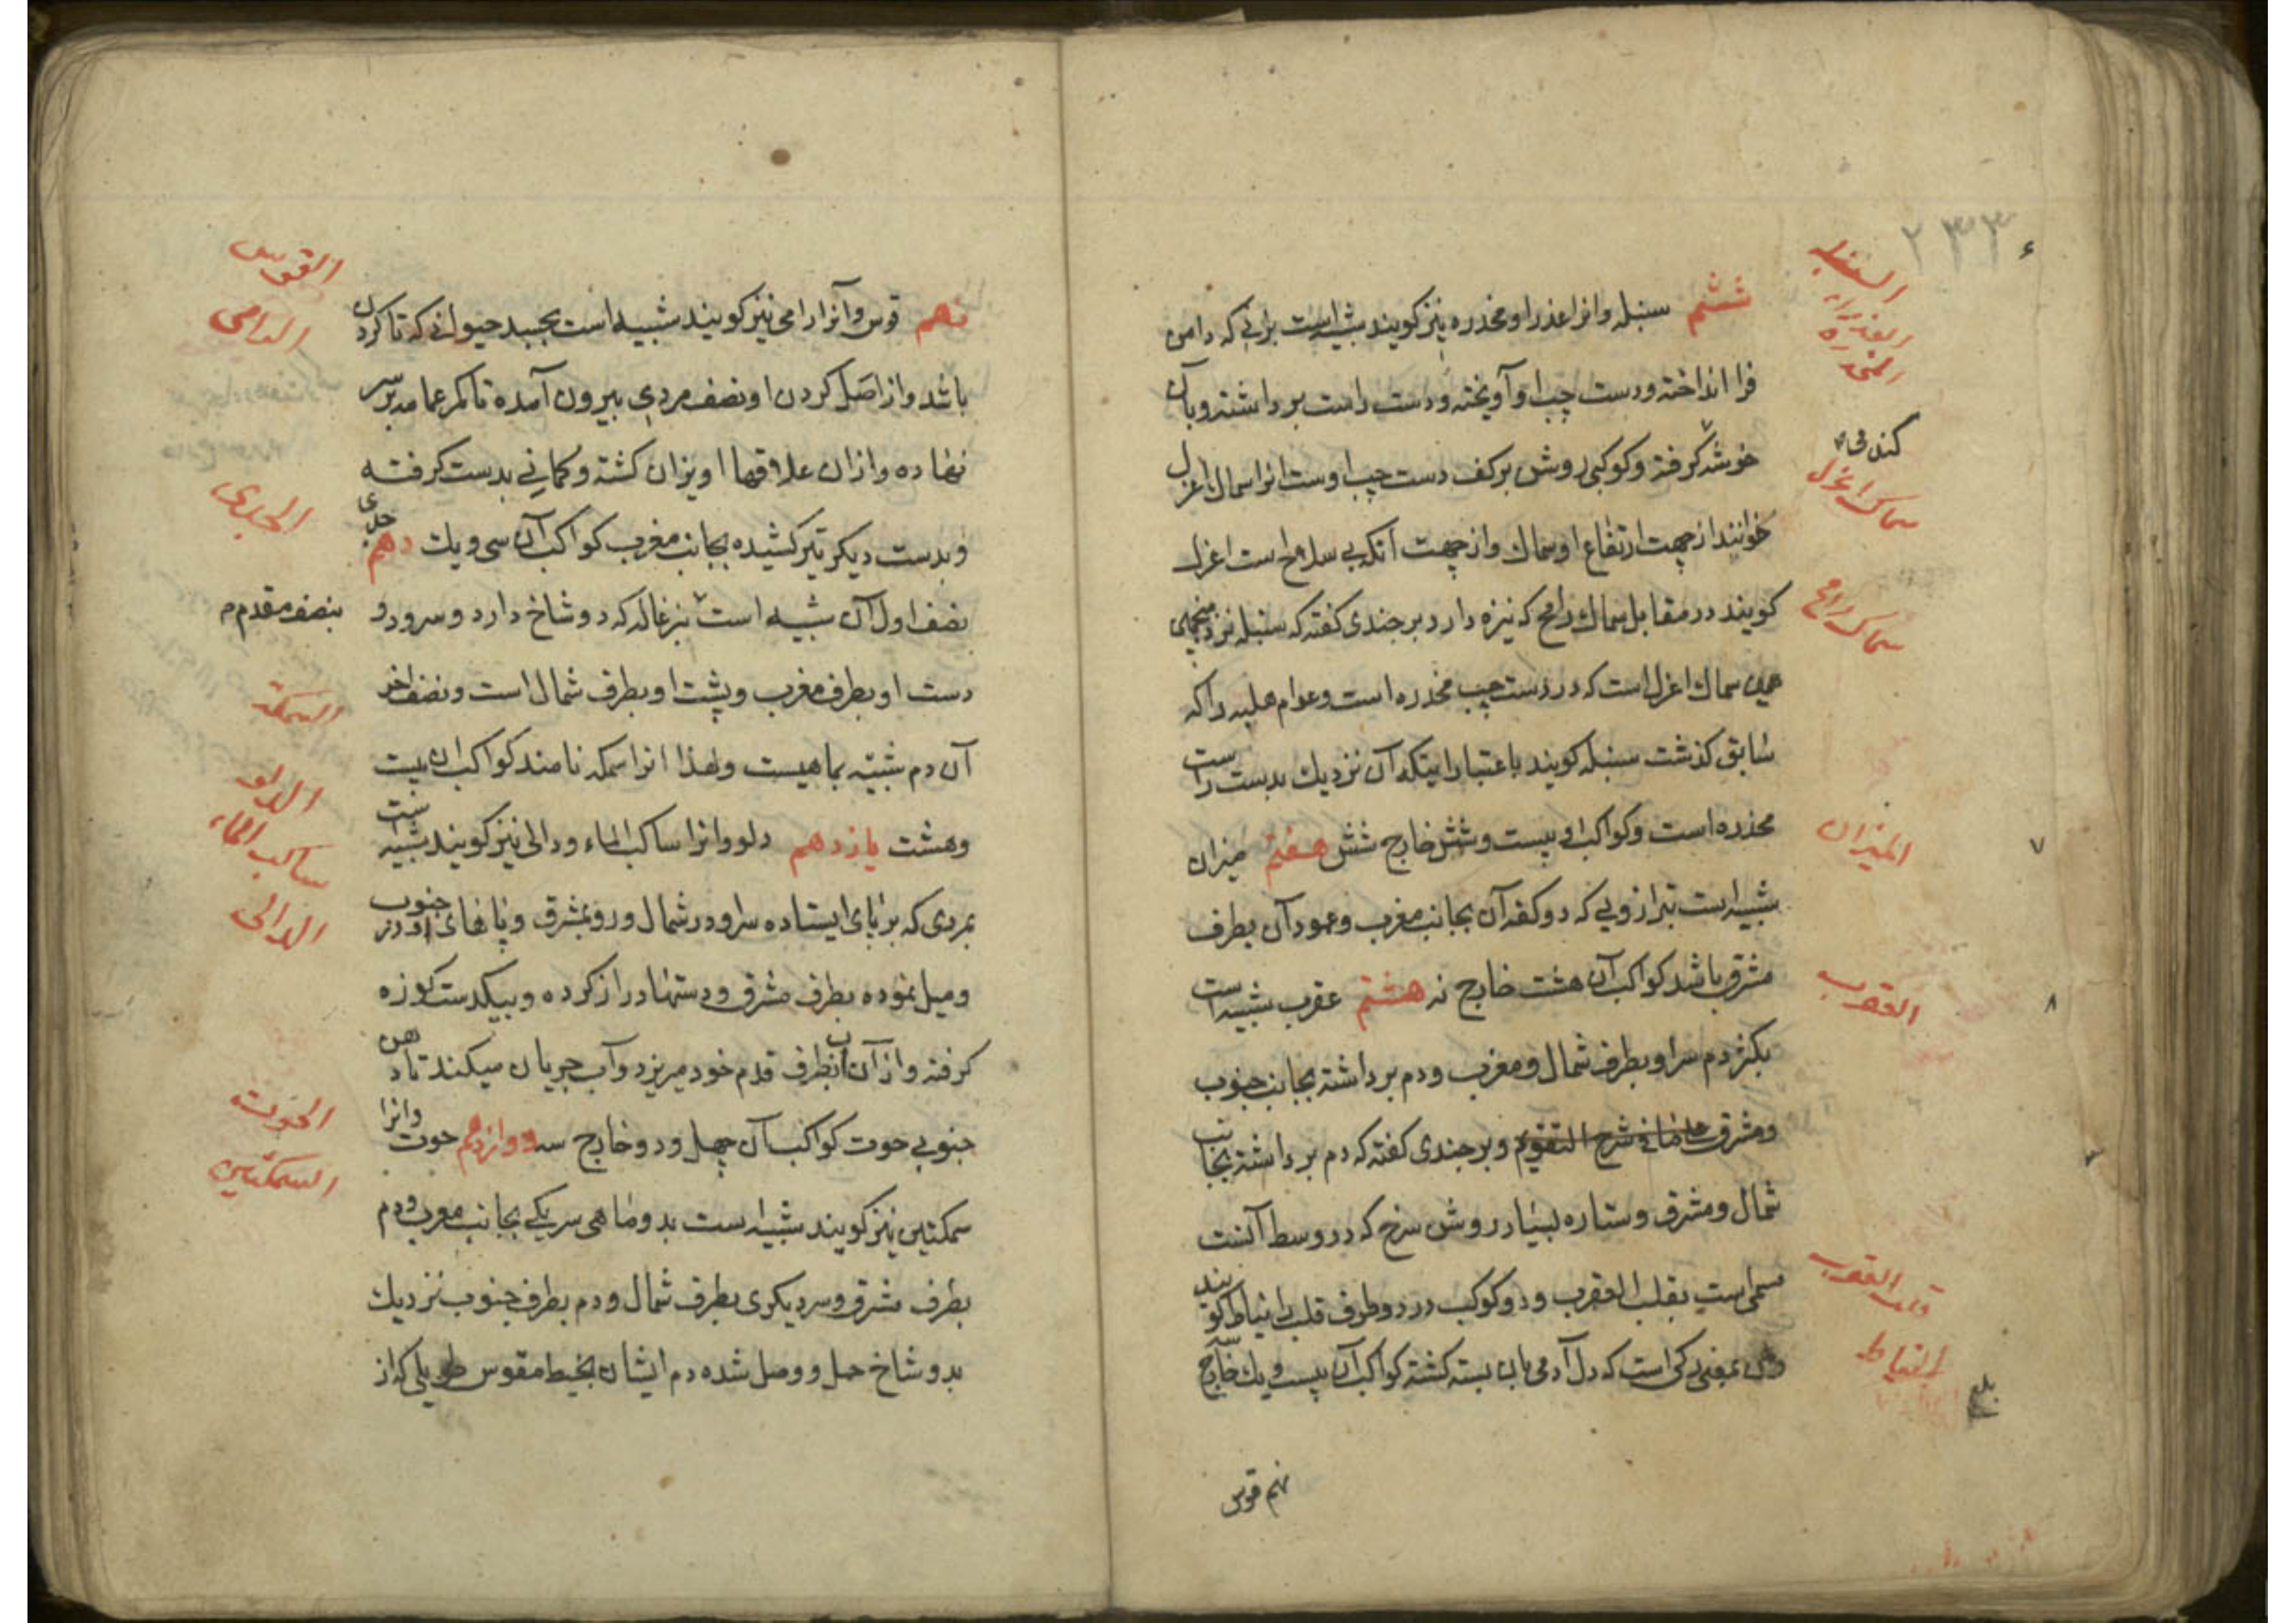 ۲۳۳
السنبله
العذراء
المخدره
ششم سنبله وانرا عذرا و مخدره نیز کویند شبیه است بزنی که دامن
فرا انداخته و دست چپ او آویخته و دست راست برداشته و بآن
خوشه کرفته و کوکبی روشن برکف دست چپ اوست انرا سماك اعزل
سماك اعزل
خوانند از جهت ارتفاع او سماك و از جهت آنکه بی سلاح است اعزل
کویند در مقابل سماك رامح که نیزه دارد و برجندی کفته که سنبله نزد منجمان
سماك رامح
همین سماك اعزل است که در دست چپ مخدره است و عوام هلبه را که
سابق کذشت سنبله کویند باعتبار اینکه آن نزدیك بدست راست
محذره است و کواکب او بیست و شش خارج شش هفتم میزان
المیزان
۷
شبیه است بترازویی که دو کفه آن بجانب مغرب و عمود آن بطرف
مشرق باشد کواکب آن هشت خارج نه هشتم عقرب شبیه است
العقرب
۸
بکژدم سر او بطرف شمال و مغرب و دم برداشته بجانب جنوب
ومشرق و برجندی کفته که دم برداشته بجانب
شمال و مشرق و ستاره بسیار روشن سرخ که در وسط آنست
مسمی است بقلب العقرب و دو کوکب در دو طرف قلب را نیاط کویند
قلب العقرب
النیاط
بمعنی رکی است که دل آدمی بان بسته کشته کواکب آن بیست و یك خارج سه
بلغ
نهم قوس
القوس
الرامی
نهم قوس و آنرا رامی نیز کویند شبیه است بجسد حیوانی که تا کردن
باشد و از اصل کردن او نصف مردی بیرون آمده تا کمر عمامه بر سر
نهاده و ازان علاقها اویزان کشته و کمانی بدست کرفته
الجدی
و بدست دیکر تیر کشیده بجانب مغرب کواکب آن سی و یك دهم جدی
نصف اول آن شبیه است بزغاله که دو شاخ دارد و سر و دو
بنصف مقدم
دست او بطرف مغرب و پشت او بطرف شمال است و نصف اخر
السمکة
آن دم شبیه بماهیست و لهذا انرا سمکه نامند کواکب ان بیست
الدلو
ساکب الماء
الدالی
وهشت یازدهم دلو وانرا ساکب الماء و دالی نیز کویند شبیه است
بمردی که برپای ایستاده سر او در شمال و رو بمشرق و پاهای او در جنوب
و میل نموده بطرف مشرق و دستها دراز کرده و بیکدست کوزه
کرفته و از آن آب بطرف قدم خود میریزد و آب جریان میکند تا دهن
الحوت
السمکتین
جنوبی حوت کواکب آن چهل و دو خارج سه دوازدهم حوت وانرا
سمکتین نیز کویند شبیه است بدو ماهی سر یکی بجانب مغرب و دم
بطرف مشرق و سر دیکری بطرف شمال و دم بطرف جنوب نزدیك
بدو شاخ حمل و وصل شده دم ایشان بخیط مقوس طویلی که از